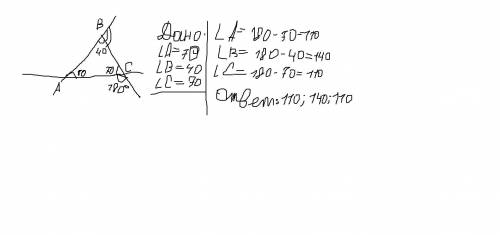 B
40
A
70
70
C
180°
Дано:
∠A=70
∠B=40
∠C=70
∠A=180-70=110
∠B=180-40=140
∠C=180-70=110
Ответ:110;140;110